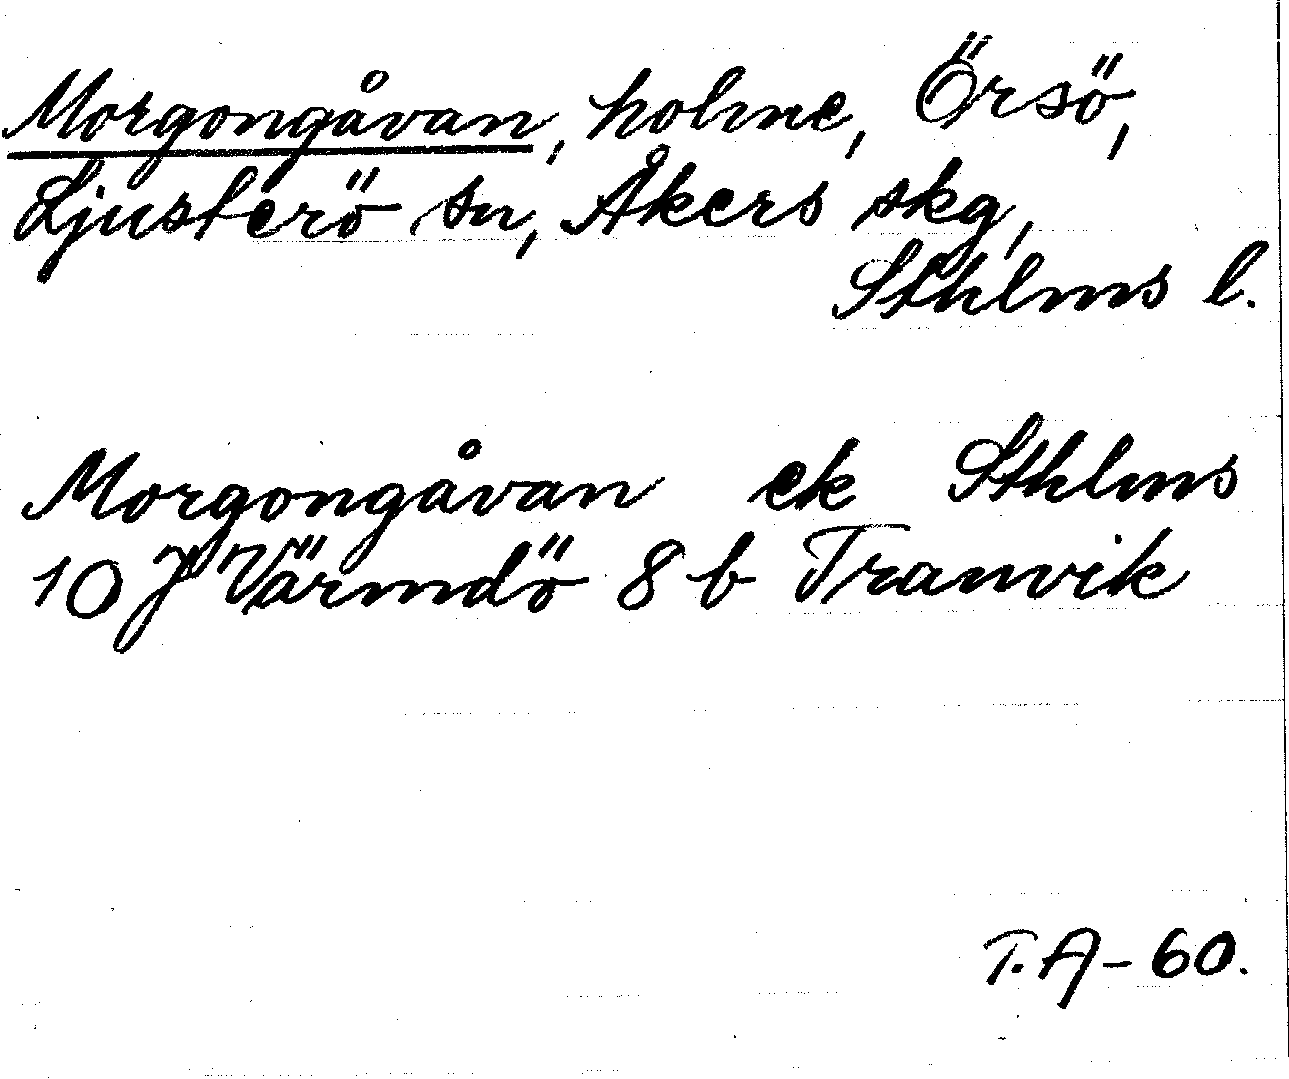 Morgongåvan, holme, Örsö,
Ljusterö sn, Åkers skg,
Sthlms l.
Morgongåvan ek Sthlms
10 J Värmdö 8 b Tranvik
T.A-60.